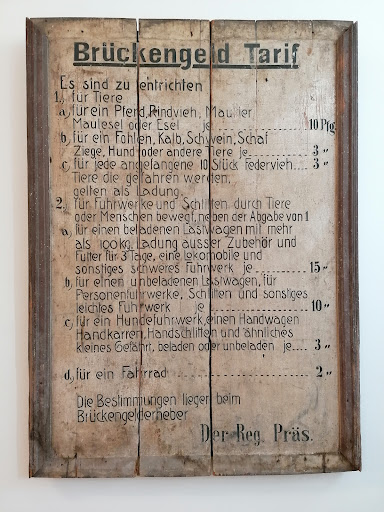 Brückengeld Tarif
Es sind zu entrichten
1., für Tiere
a, für ein Pferd, Rindvieh, Maultier
Maulesel oder Esel je............10 Pfg
b, für ein Fohlen, Kalb, Schwein, Schaf
Ziege, Hund oder andere Tiere je........3 "
c, für jede angefangene 10 Stück Federvieh...3 "
Tiere die gefahren werden,
gelten als Ladung.
2., für Fuhrwerke und Schlitten, durch Tiere
oder Menschen bewegt, neben der Abgabe von 1
a, für einen beladenen Lastwagen mit mehr
als 100 kg. Ladung ausser Zubehör und
Futter für 3 Tage, eine Lokomobile und
sonstiges schweres Fuhrwerk je........15 "
b, für einen unbeladenen Lastwagen, für
Personenfuhrwerke, Schlitten und sonstiges
leichtes Fuhrwerk je............10 "
c, für ein Hundefuhrwerk, einen Handwagen
Handkarren, Handschlitten und ähnliches
kleines Gefährt, beladen oder unbeladen je....3 "
d, für ein Fahrrad................2 "
Die Bestimmungen liegen beim
Brückengelderheber
Der Reg. Präs.